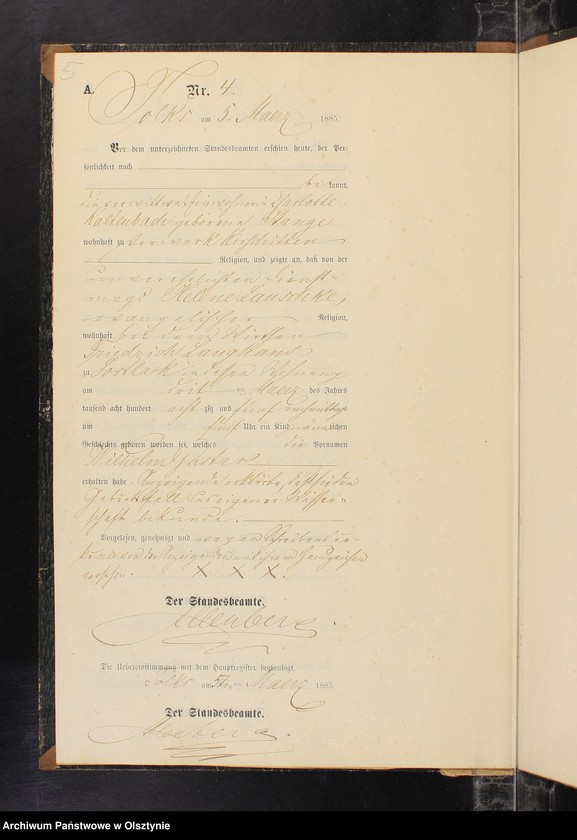 5
A.
Nr. 4.
Tolks am 5. Maerz 1885.
Vor dem unterzeichneten Standesbeamten erschien heute, der Per-
sönlichkeit nach
bekannt,
die verwittwete Einwohnerin Charlotte
Kaltenbach geborene Stange
wohnhaft zu Vorwerk Kirschitten
Religion, und zeigte an, daß von der
unverehelichten Dienst-
magd Helene Lauschke,
evangelischer Religion,
wohnhaft bei dem Wirthen
Friedrich Langhans
zu Sortlack in dessen Wohnung
am Maerz des Jahres
tausend acht hundert acht zig und fünf nachmittags
um fünf Uhr ein Kind männlichen
Geschlechts geboren worden sei, welches die Vornamen
Wilhelm Gustav
erhalten habe. Anzeigende erklärte, daß sie den
Geburtsfall aus eigener Wissen-
schaft bekunde.
Vorgelesen, genehmigt und wegen Schreibensun-
kunde von der Anzeigenden mit ihrem Handzeichen
versehen. X X X.
Der Standesbeamte.
Die Uebereinstimmung mit dem Hauptregister beglaubigt.
Tolks am 5ten Maerz 1885.
Der Standesbeamte.
Archiwum Państwowe w Olsztynie